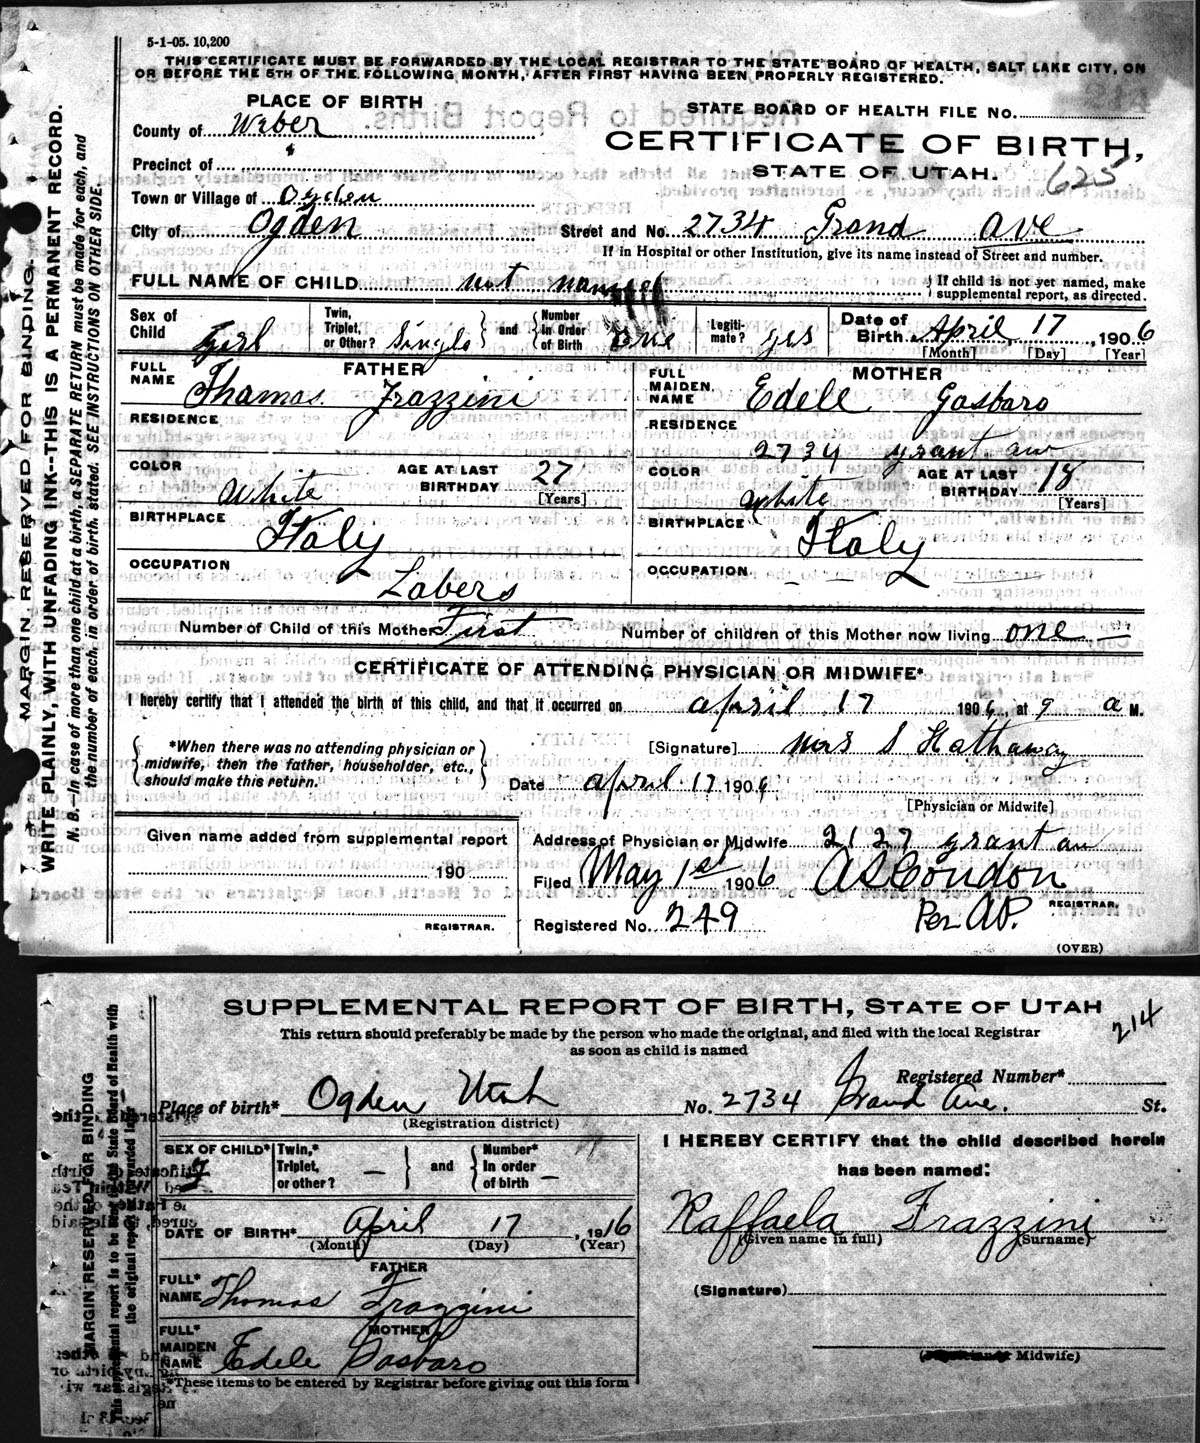 5-1-05. 10,200
THIS CERTIFICATE MUST BE FORWARDED BY THE LOCAL REGISTRAR TO THE STATE BOARD OF HEALTH, SALT LAKE CITY, ON
OR BEFORE THE 5TH OF THE FOLLOWING MONTH, AFTER FIRST HAVING BEEN PROPERLY REGISTERED.
MARGIN RESERVED FOR BINDING.
WRITE PLAINLY, WITH UNFADING INK--THIS IS A PERMANENT RECORD.
N. B.--In case of more than one child at a birth, a SEPARATE RETURN must be made for each, and
the number of each, in order of birth, stated. SEE INSTRUCTIONS ON OTHER SIDE.
PLACE OF BIRTH
STATE BOARD OF HEALTH FILE No.
County of Weber
CERTIFICATE OF BIRTH,
Precinct of
STATE OF UTAH. 625
Town or Village of Ogden
City of Ogden
Street and No. 2734 Grand Ave
If in Hospital or other Institution, give its name instead of Street and number.
FULL NAME OF CHILD not named
If child is not yet named, make
supplemental report, as directed.
Sex of Child Girl
Twin, Triplet, or Other? Single
and Number In Order of Birth one
Legiti- mate? yes
Date of Birth April 17, 1906
[Month] [Day] [Year]
FATHER
FULL NAME Thomas Frazzini
RESIDENCE
COLOR White
AGE AT LAST BIRTHDAY 27
[Years]
BIRTHPLACE Italy
OCCUPATION Labers
MOTHER
FULL MAIDEN NAME Edele Gasbaro
RESIDENCE
2734 grant av
COLOR White
AGE AT LAST BIRTHDAY 18
[Years]
BIRTHPLACE Italy
OCCUPATION
Number of Child of this Mother First
Number of children of this Mother now living one
CERTIFICATE OF ATTENDING PHYSICIAN OR MIDWIFE*
I hereby certify that I attended the birth of this child, and that it occurred on april 17 1906, at 9 a M.
*When there was no attending physician or
midwife, then the father, householder, etc.,
should make this return.
[Signature] Mrs S Hathaway
Date april 17 1906
[Physician or Midwife]
Given name added from supplemental report
190
REGISTRAR.
Address of Physician or Midwife 2127 grant av
Filed May 1st 1906 A S Condon
REGISTRAR.
Registered No. 249 Per AP.
(OVER)
SUPPLEMENTAL REPORT OF BIRTH, STATE OF UTAH
This return should preferably be made by the person who made the original, and filed with the local Registrar
as soon as child is named
214
MARGIN RESERVED FOR BINDING
Registered Number*
Place of birth* Ogden Utah
No. 2734 Grand Ave. St.
(Registration district)
SEX OF CHILD* F
Twin,* Triplet, or other? —
and Number* In order of birth —
DATE OF BIRTH* April 17, 1916
(Month) (Day) (Year)
FATHER
FULL* NAME Thomas Frazzini
MOTHER
FULL* MAIDEN NAME Edele Gasbaro
*These items to be entered by Registrar before giving out this form
I HEREBY CERTIFY that the child described herein
has been named:
Raffaela Frazzini
(Given name in full) (Surname)
(Signature)
Midwife)